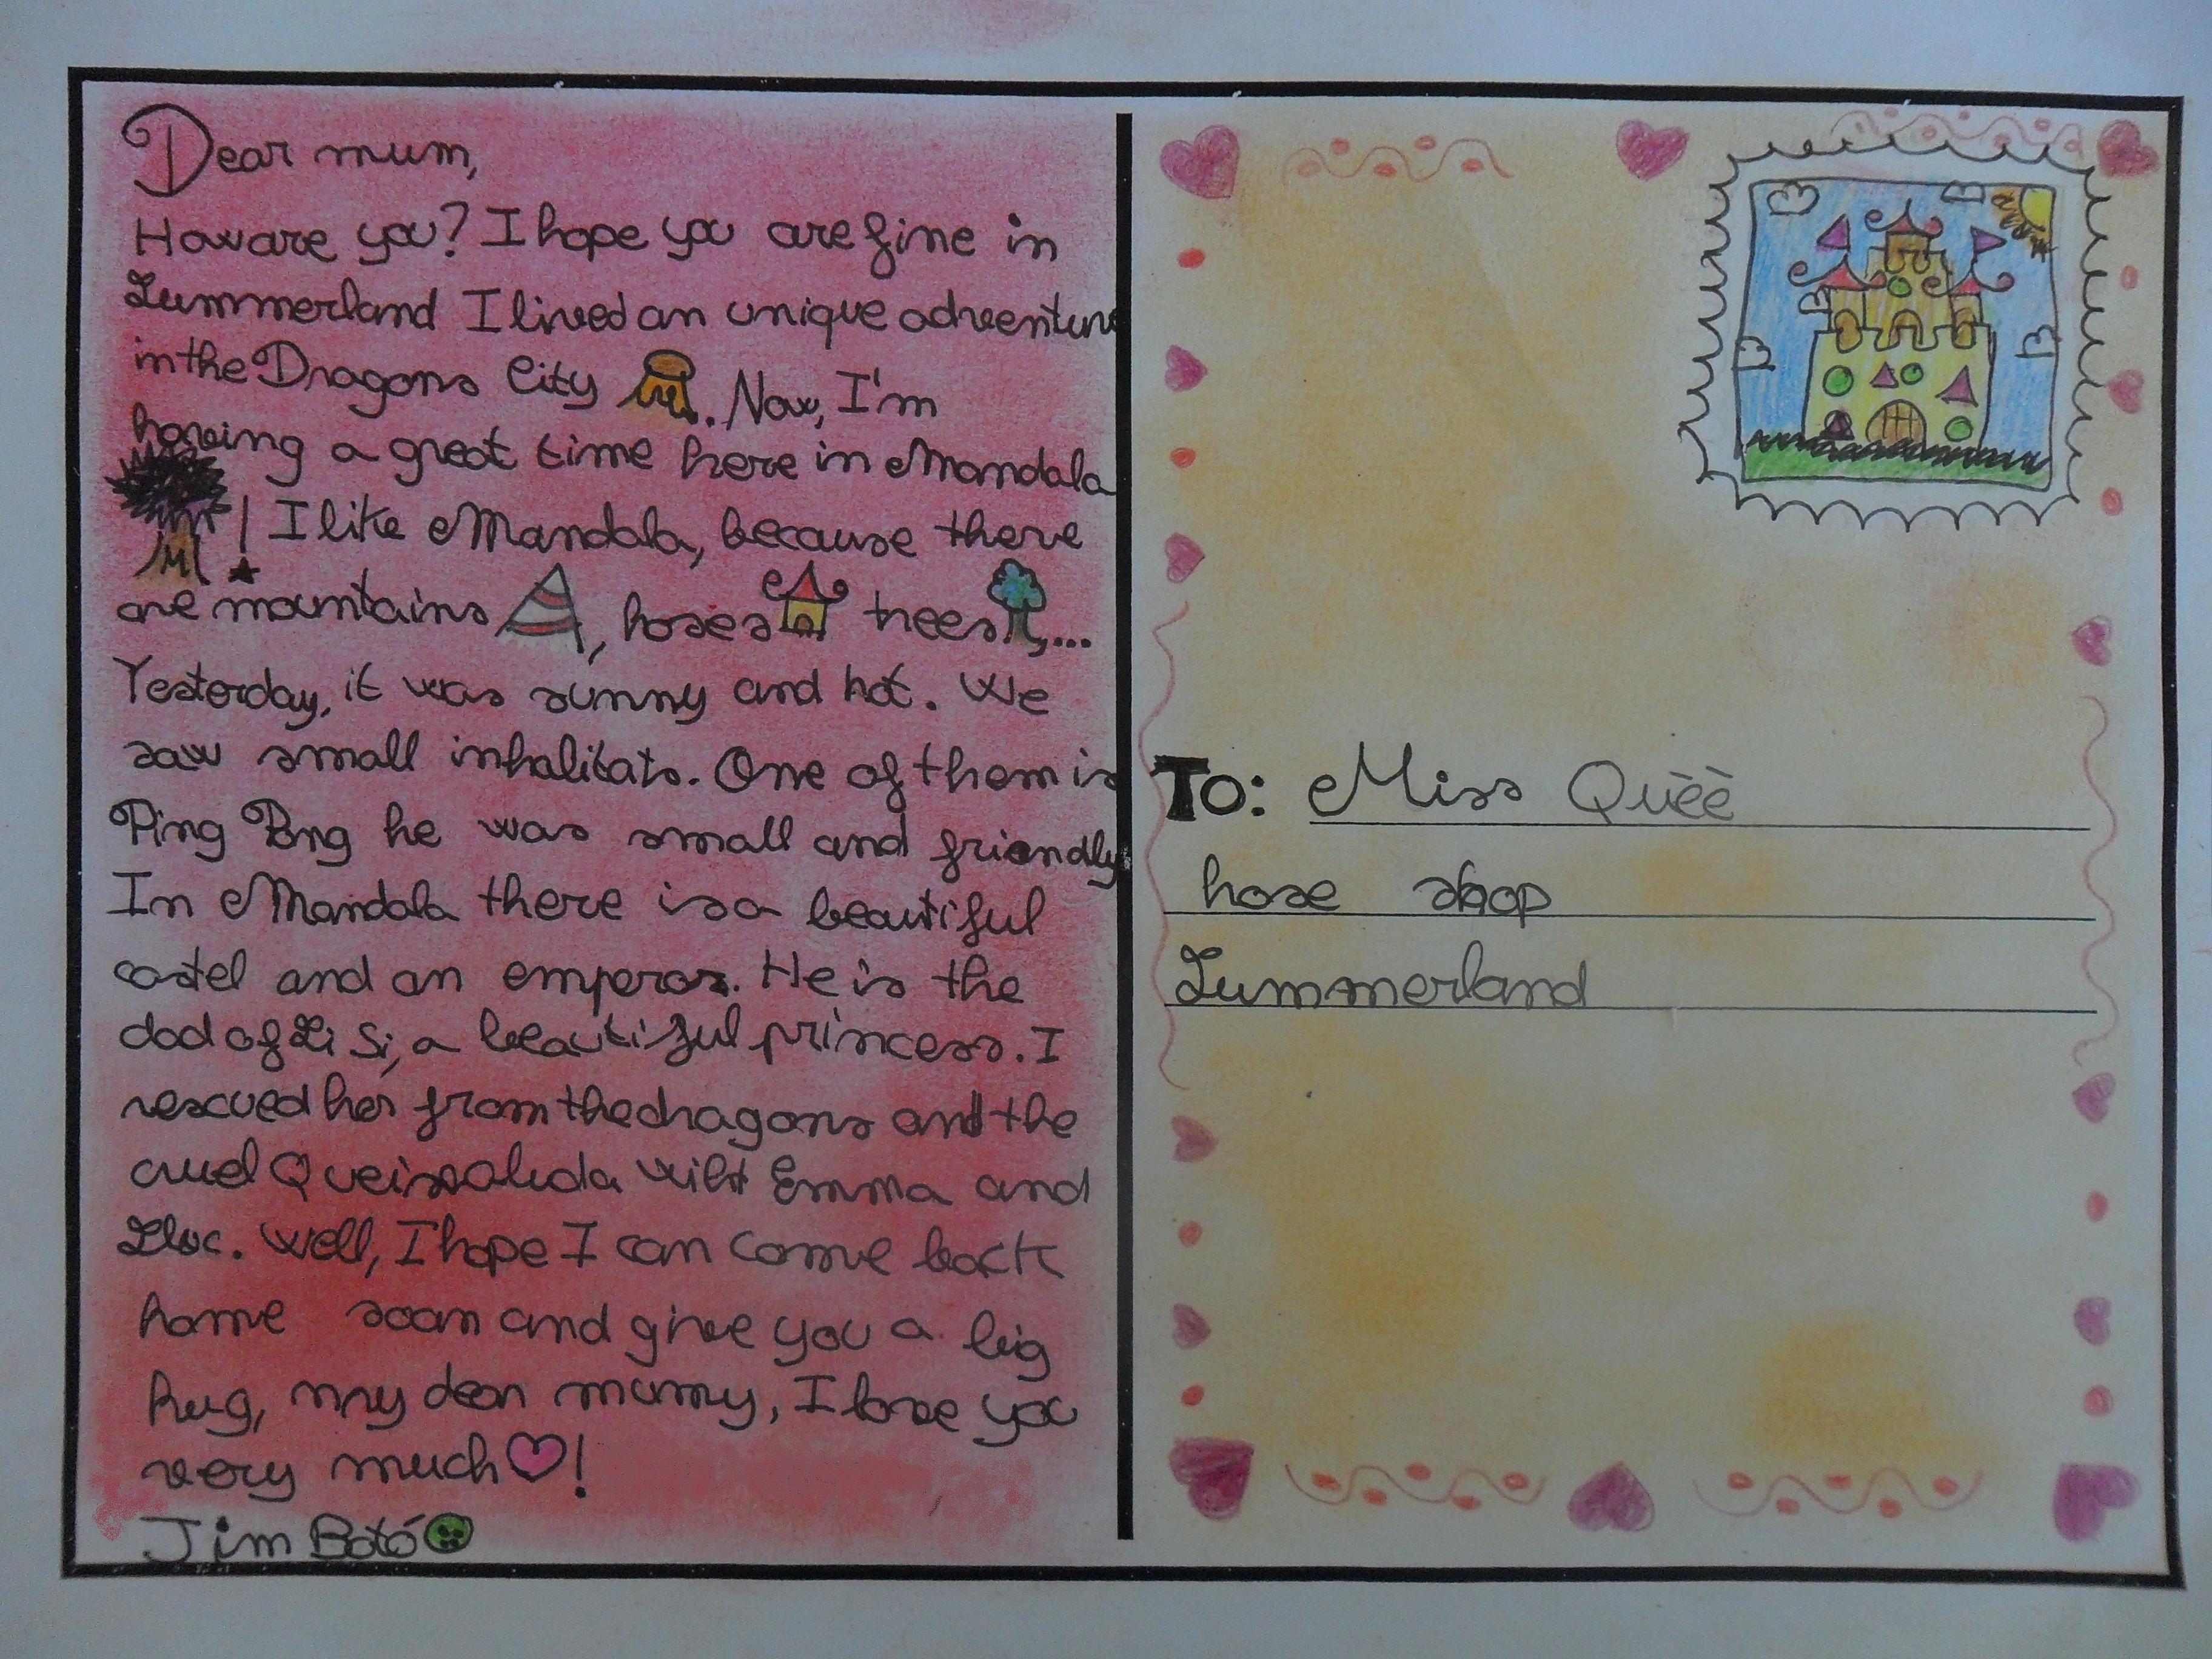 Dear mum,
How are you? I hope you are fine in
Lummerland I lived an unique adventure
in the Dragons City . Now, I'm
having a great time here in Mandala
! I like Mandala, because there
are mountains , hoses trees ,...
Yesterday, it was sunny and hot. We
saw small inhalitats. One of them is
Ping Pong he was small and friendly
In Mandala there is a beautiful
castel and an emperor. He is the
dad of Li Si, a beautiful princess. I
rescued her from the dragons and the
cruel Queixaluda wiht Emma and
Lluc. Well, I hope I can come back
home soon and give you a big
hug, my dear mumy, I love you
very much !
Jim Botó
To: Miss Quèè
hose shop
Lummerland